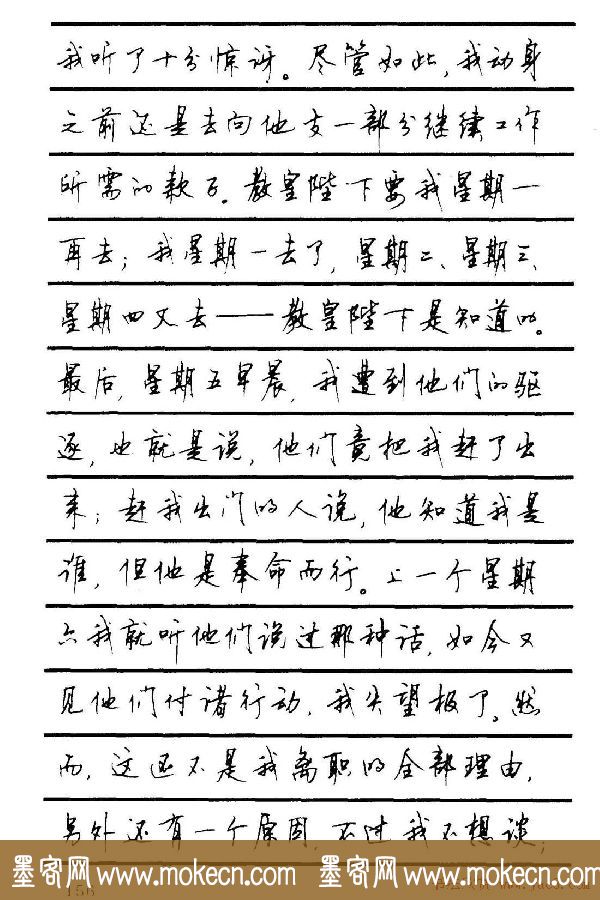 我听了十分惊讶。尽管如此，我动身
之前还是去向他支一部分继续工作
所需的款子。教皇陛下要我星期一
再去；我星期一去了，星期二、星期三、
星期四又去——教皇陛下是知道的。
最后，星期五早晨，我遭到他们的驱
逐，也就是说，他们竟把我赶了出
来；赶我出门的人说，他知道我是
谁，但他是奉命而行。上一个星期
六我就听他们说过那种话，如今又
见他们付诸行动，我失望极了。然
而，这还不是我离职的全部理由，
另外还有一个原因，不过我不想谈；
墨客网 www.mokecn.com 墨客网 www.mokecn.com